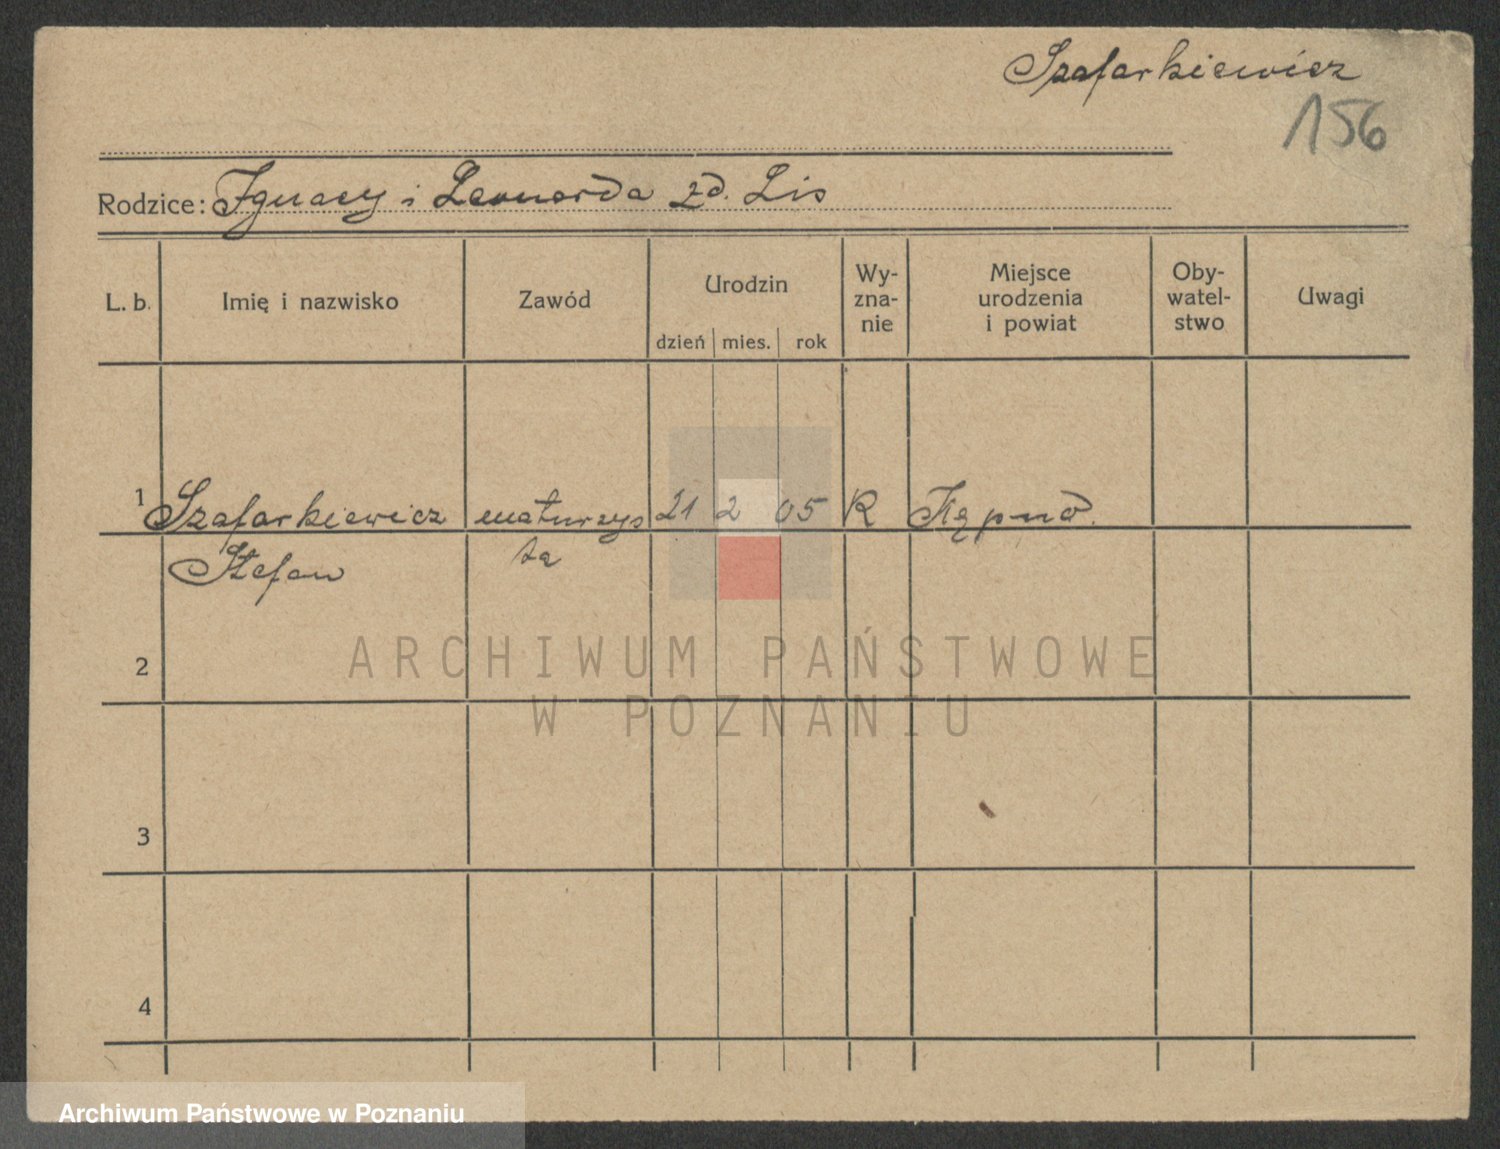 Szafarkiewicz
156
Rodzice: Ignacy i Leonarda zd. Lis
L. b.
Imię i nazwisko
Zawód
Urodzin
dzień mies. rok
Wy-
zna-
nie
Miejsce
urodzenia
i powiat
Oby-
watel-
stwo
Uwagi
1 Szafarkiewicz maturzys 21 2 05 R Kępno.
Stefan ta
2
ARCHIWUM PAŃSTWOWE
W POZNANIU
3
4
Archiwum Państwowe w Poznaniu